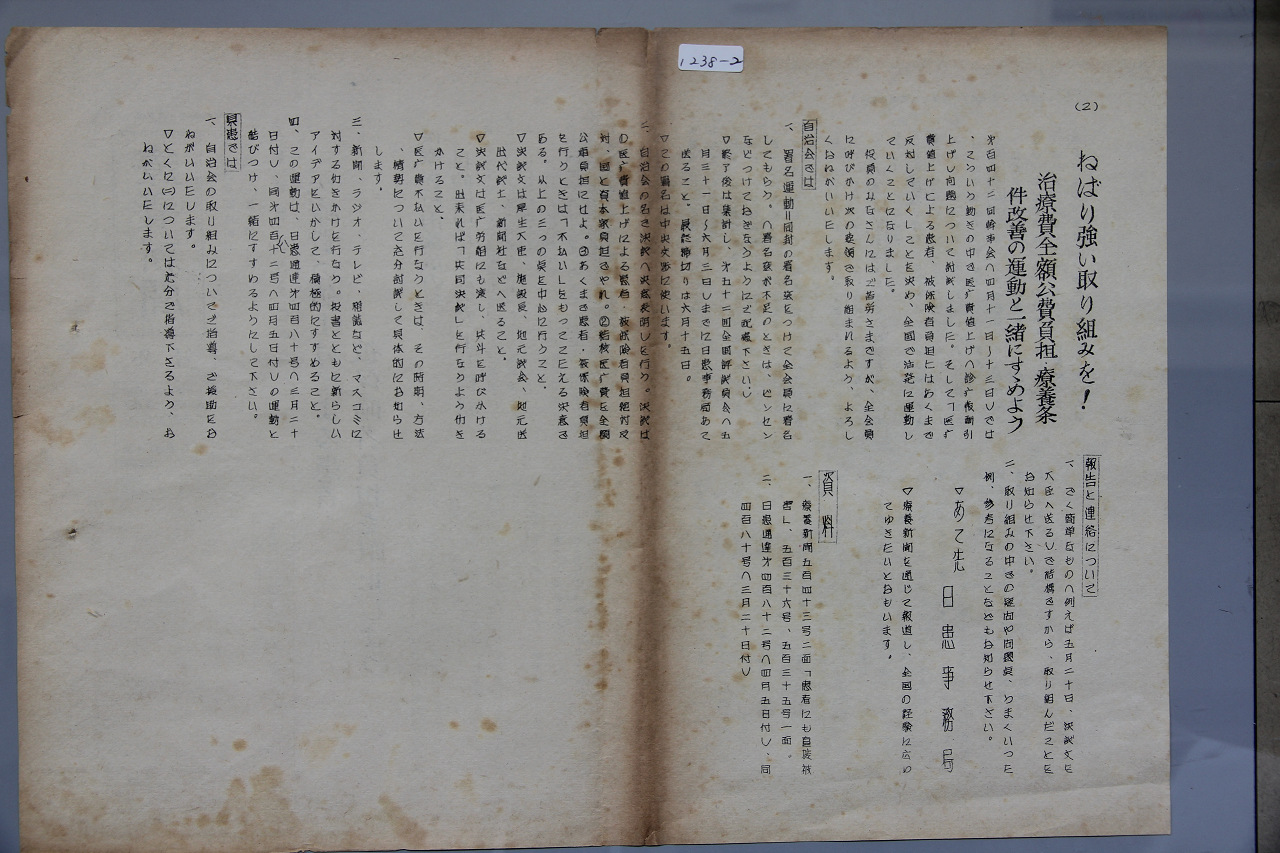 1238-2
(2)
ねばり強い取り組みを!
治療費全額公費負担、療養条
件改善の運動と一緒にすゝめよう
第百四十二回幹事会へ四月十一日~十三日しでは
、こういう動きの中で医广費値上げへ診广報酬引
上げし問題について討議しました。そして「医广
費値上げによる患者、被保険者負担にはあくまで
反対していくしことを決め、全国で活発に運動し
ていくことになりました。
役員のみなさんにはご苦労さまですが、全会員
に呼びかけ次の要領で取り組まれるよう、よろし
くおねがいいたします。
自治会では
一、署名運動=同封の署名簿をつけて全会員に署名
してもらう。へ署名簿が不足のときは、ビンセン
などつけておぎなうようにご配慮下さいし
▽終了後は集計し、第五十二回全国評議員会へ五
月三十一日~六月三日しまでに日患事務局あて
送ること。最終締切りは六月十五日。
▽この署名は中央交渉に使います。
二、自治会の名で決議へ決意表明しを行う。決議は
①医广費値上げによる患者・被保険者負担絶対反
対、国と資本家負担でやれ。②結核医广費を全額
公費負担にせよ。③あくまで患者・被保険者負担
を行うときは「不払いしをもってこたえる決意で
ある。以上の三つの点を中心に行うこと。
▽決議文は厚生大臣、施設長、地元議会、地元医
出代議士、新聞社などへ送ること。
▽決議文は医广労組にも渡し、共斗を呼びかける
こと。出来れば「共同決議しを行なうよう力を
かけること。
▽医广費不払いを行なうときは、その時期、方法
、情勢について充分討議して具体的にお知らせ
します。
三、新聞、ラジオ、テレビ、雑誌など、マスコミに
対する働きかけを行なう。投書とともに新らしい
アイデアをいかして、積極的にすすめること。
四、この運動は、日患通達第四百八十号へ三月二十
日付し、同第四百八十二号へ四月五日付しの運動と
結びつけ、一緒にすすめるようにして下さい。
県患では
一、自治会の取り組みについてご指導、ご援助をお
ねがいいたします。
▽とくに㈡については充分ご指導下さるよう、お
ねがいいたします。
報告と連絡について
一、ごく簡単なものへ例えば五月二十日、決議文を
大臣へ送るしで結構ですから、取り組んだことを
お知らせ下さい。
二、取り組みの中での経向や問題点、うまくいった
例、参考になることなどもお知らせ下さい。
▽あて先 日患事務局
▽療養新聞を通じて報道し、全国の経験に広め
てゆきたいとおもいます。
資料
一、療養新聞五百四十三号二面「患者にも直接被
害し、五百三十六号、五百三十五号一面。
二、日患通達第四百八十二号へ四月五日付し、同
四百八十号へ三月二十日付し